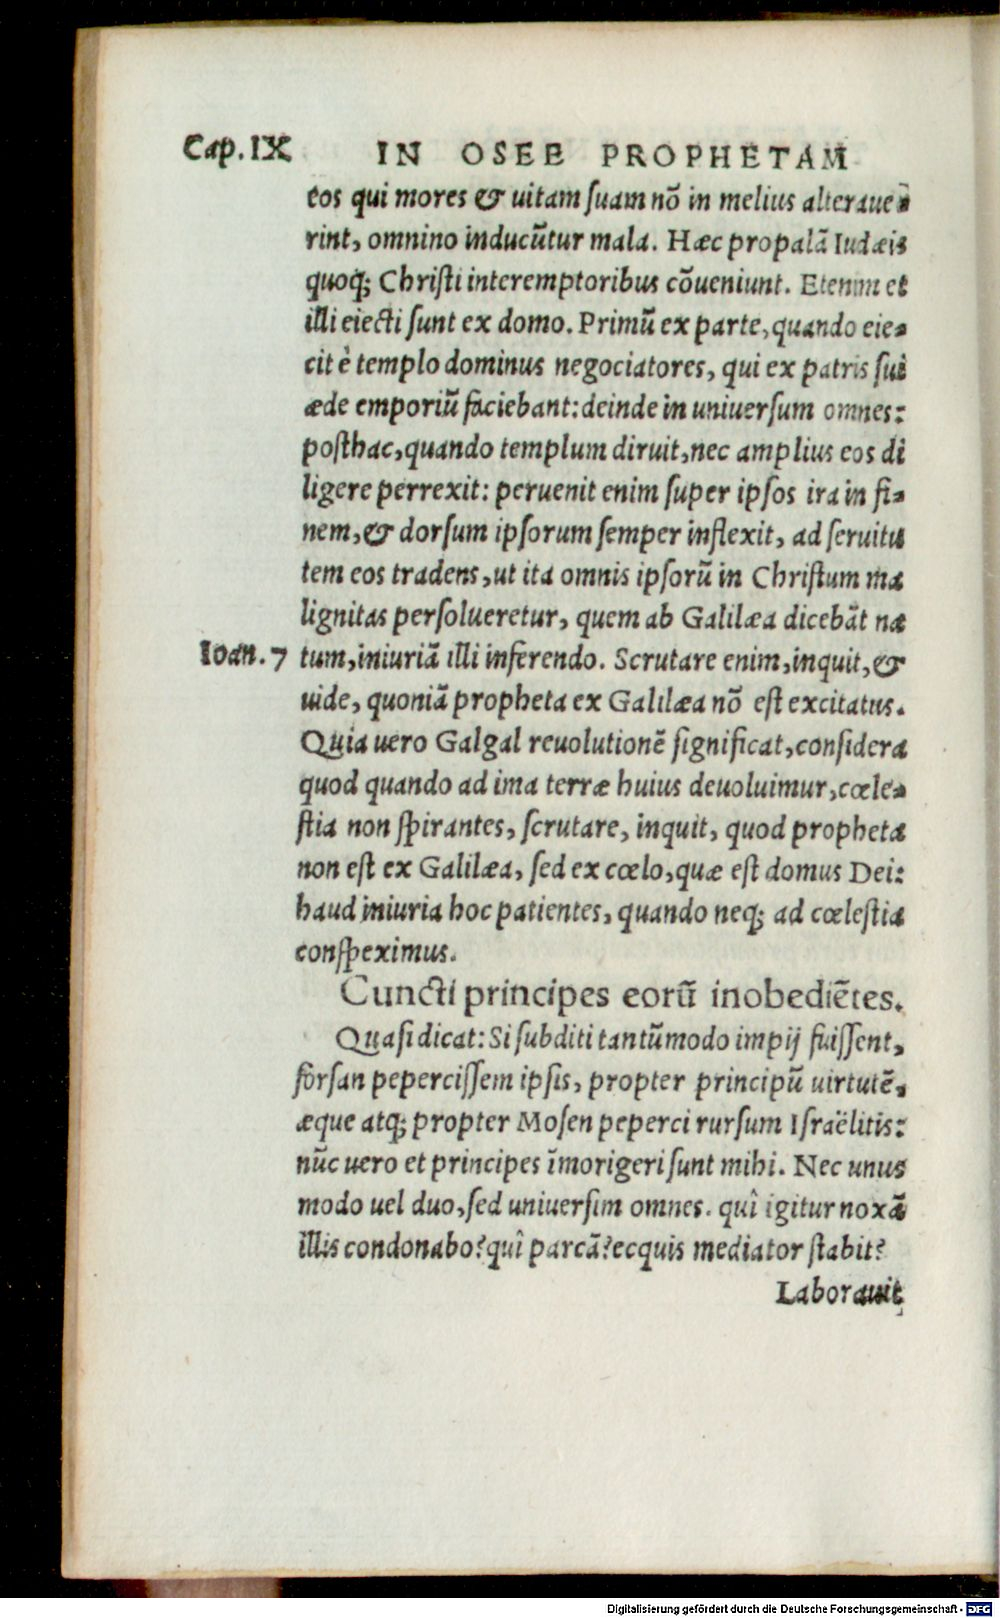 Cap. IX IN OSEE PROPHETAM
eos qui mores & uitam ſuam nõ in melius alteraue-
rint, omnino inducũtur mala. Hæc propalã Iudæis
quoq; Chriſti interemptoribus cõueniunt. Etenim et
illi eiecti ſunt ex domo. Primũ ex parte, quando eie-
cit è templo dominus negociatores, qui ex patris ſui
æde emporiũ faciebant: deinde in uniuerſum omnes:
poſthac, quando templum diruit, nec amplius eos di
ligere perrexit: peruenit enim ſuper ipſos ira in fi-
nem, & dorſum ipſorum ſemper inflexit, ad ſeruitu
tem eos tradens, ut ita omnis ipſorũ in Chriſtum ma
lignitas perſolueretur, quem ab Galilæa dicebãt na
Ioan. 7 tum, iniuriã illi inferendo. Scrutare enim, inquit, &
uide, quoniã propheta ex Galilæa nõ eſt excitatus.
Quia uero Galgal reuolutionẽ ſignificat, conſidera
quod quando ad ima terræ huius deuoluimur, cœle-
ſtia non ſpirantes, ſcrutare, inquit, quod propheta
non eſt ex Galilæa, ſed ex cœlo, quæ eſt domus Dei:
haud iniuria hoc patientes, quando neq; ad cœleſtia
conſpeximus.
Cuncti principes eorũ inobediẽtes.
Quaſi dicat: Si ſubditi tantũmodo impij fuiſſent,
forſan peperciſſem ipſis, propter principũ uirtutẽ,
æque atq; propter Moſen peperci rurſum Iſraëlitis:
nũc uero et principes ĩmorigeri ſunt mihi. Nec unus
modo uel duo, ſed uniuerſim omnes. quî igitur noxã
illis condonabo? quî parcã? ecquis mediator ſtabit?
Laborauit
Digitalisierung gefördert durch die Deutsche Forschungsgemeinschaft - DFG